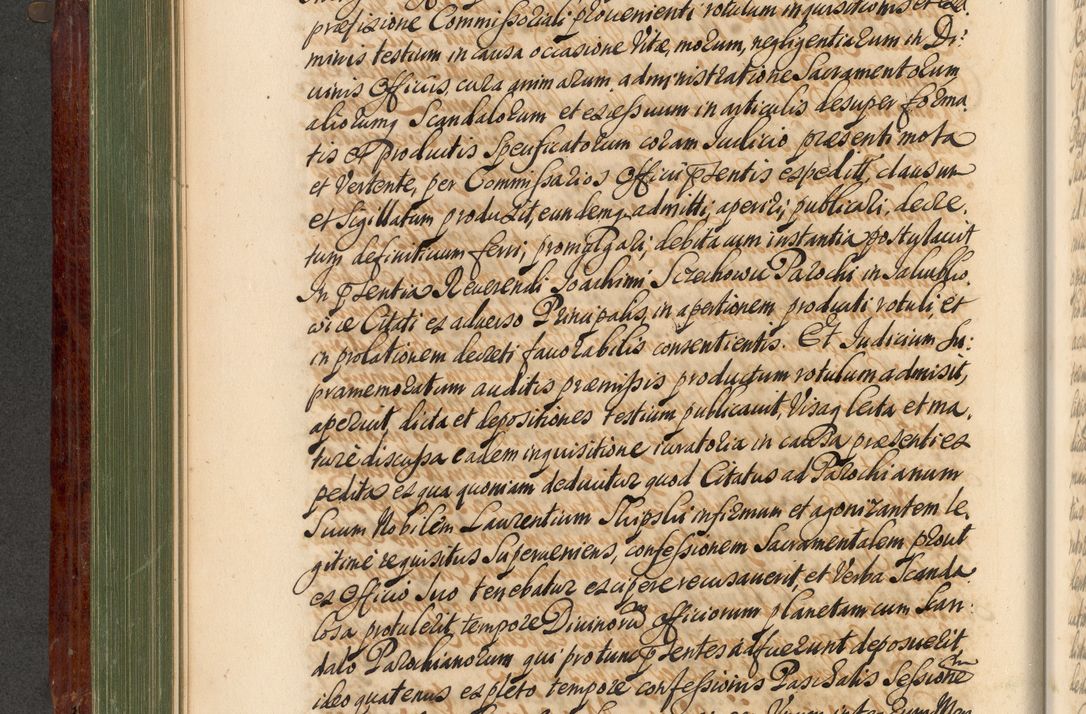 præfixione Commissoriali provenienti rotulum inquisitionis et exa
minis testium in causa occasione Vitæ, morum, negligentiarum in Di:
uinis Officiis, cura animarum administratione Sacramentorum
aliorumq Scandalorum et excessuum in articulis desuper forma
tis et productis specificatorum coram Iudicio præsenti mota
et Vertente, per Commissarios Officii psentis expediti, clausum
et Sigillatum produxit, eundemq admitti, aperiri, publicari, decre,
tum definitiuum ferri, promulgari, debita cum instantia postulauit
In psentia Reverendi Joachimi Szechowicz Parochi in
Citati ex aduerso Principalis, in apertionem producti rotuli, et
in prolationem decreti fauorabilis consentientis. Et Iudicium Su:
pramemoratum auditis præmissis productum rotulum admisit,
aperuit, dicta et depositiones testium publicauit, Visaq lecta et ma,
turè discussa eadem inquisitione iuratoria in causa præsenti ex
pedita ex qua quoniam deducitur quod Citatus ad Parochianum
Suum Nobilem Laurentium infirmum et agonizantem le,
gitimè requisitus superveniens, confessionem Sacramentalem prout
ex Officio Suo tenebatur excipere recusauerit, et Verba Scanda
losa protulerit, tempore Divinorũ officiorum planetam cum Scan:
dalo Parochianorum qui pro tunc psentes adfuerunt deposuerit,
ideo quatenus expleto tempore confessionis Paschalis Sessionem